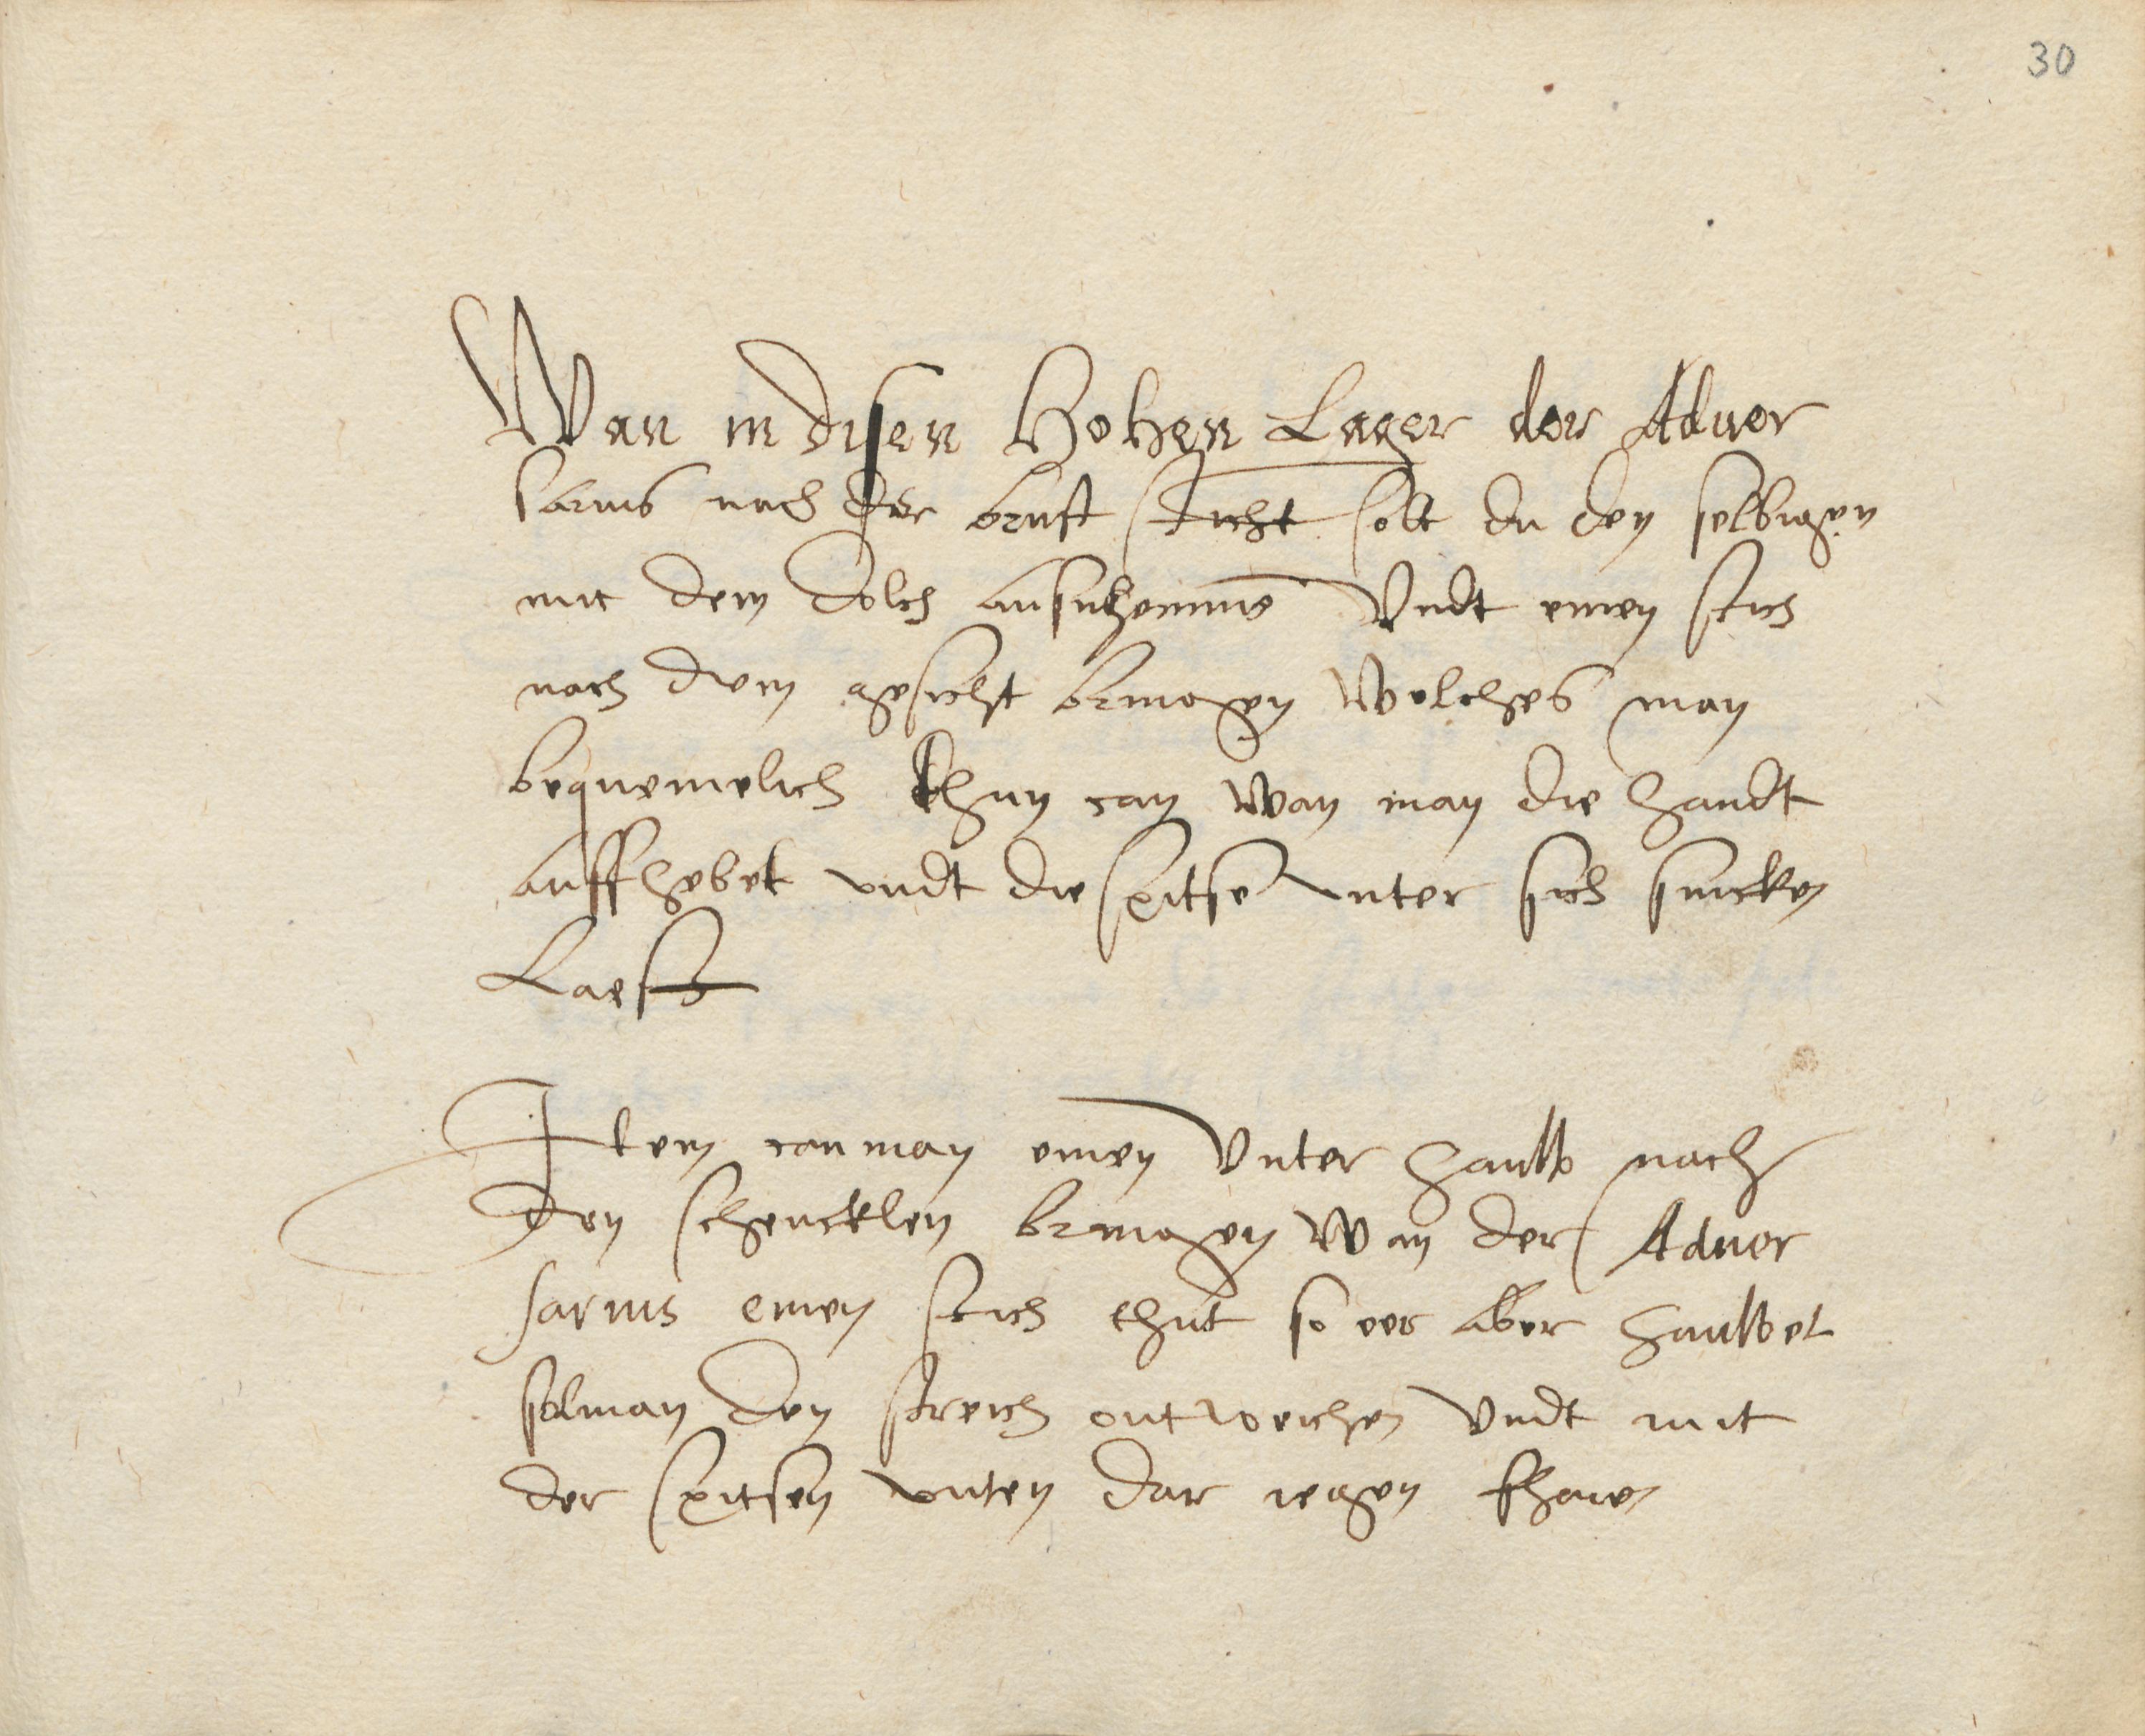 30
Wan in disen Hohen Lager der Adver
sarius nach der brust sticht solt du den selbigen
mit dem dolch ausnhemme Undt einen stich
nach dem gesicht bringen Welches man
bequemelich thun can wan man die handt
auffhebet undt die spitse unter sich sincken
Laest
Item can man einen Unter hauw nach
den schencklen bringen Wan der Adver
sarius einen stich thut so eer aber hauwet
solman den streich entweichen Undt mit
der spitsen unten dar iegen